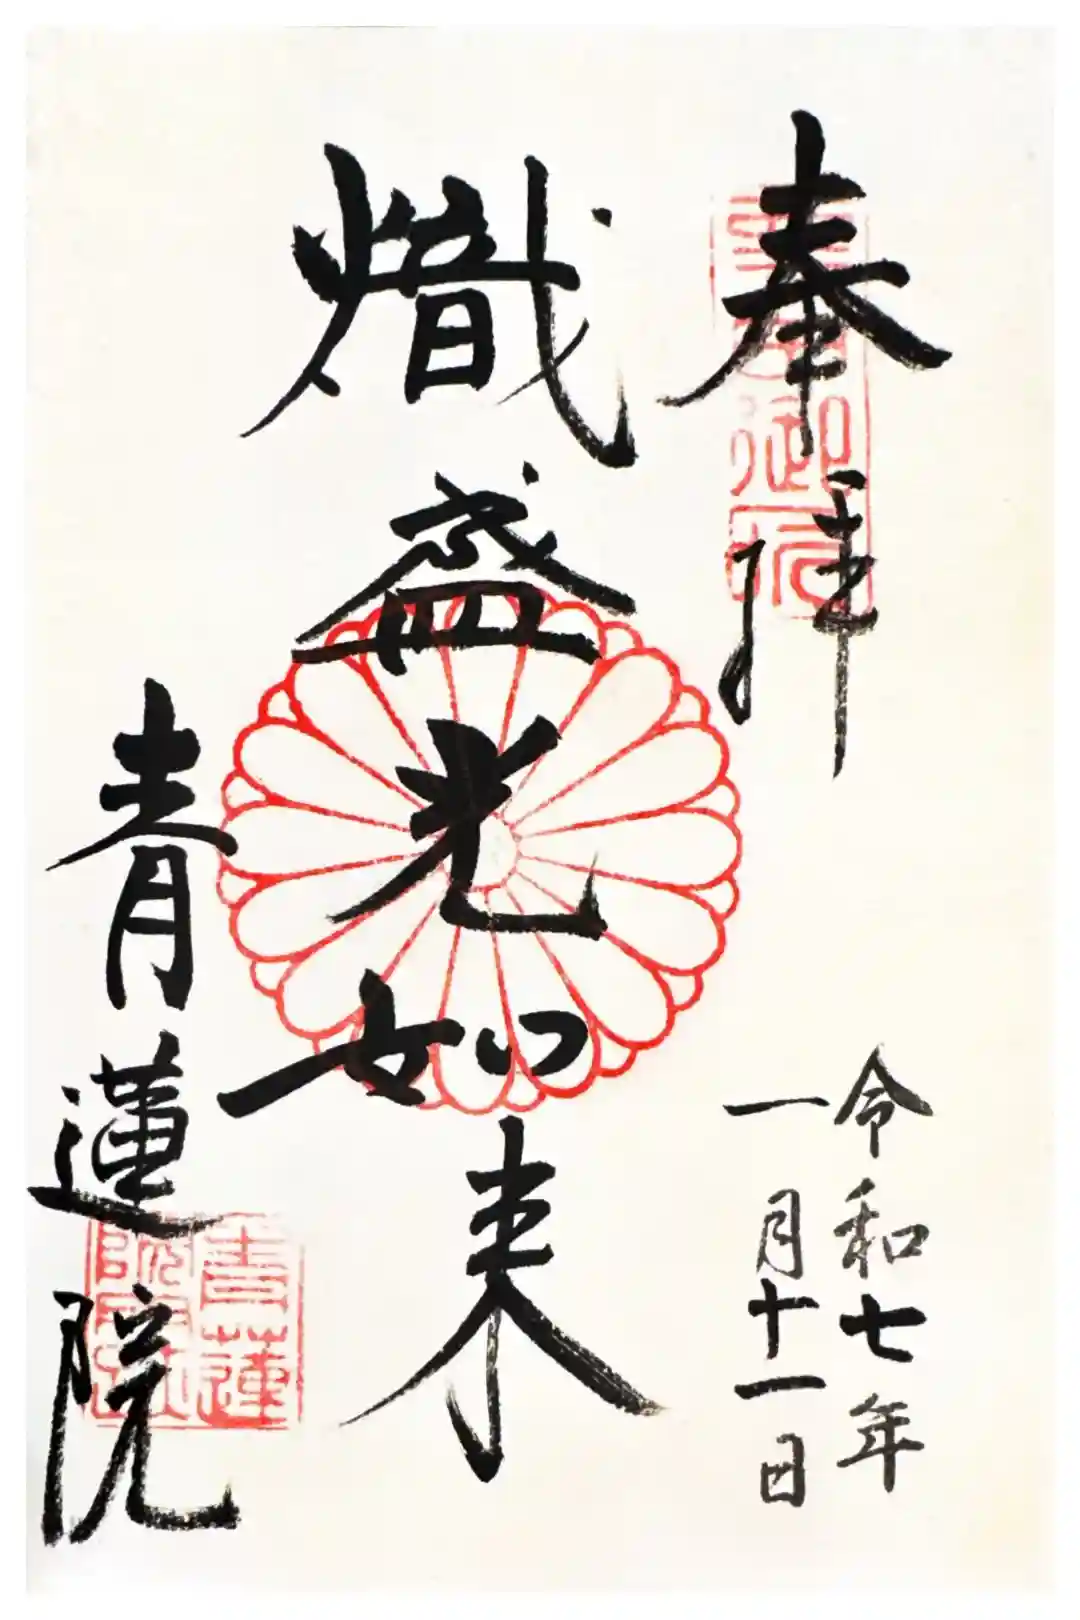 奉拝
令和七年
一月十一日
熾盛光如来
青蓮院